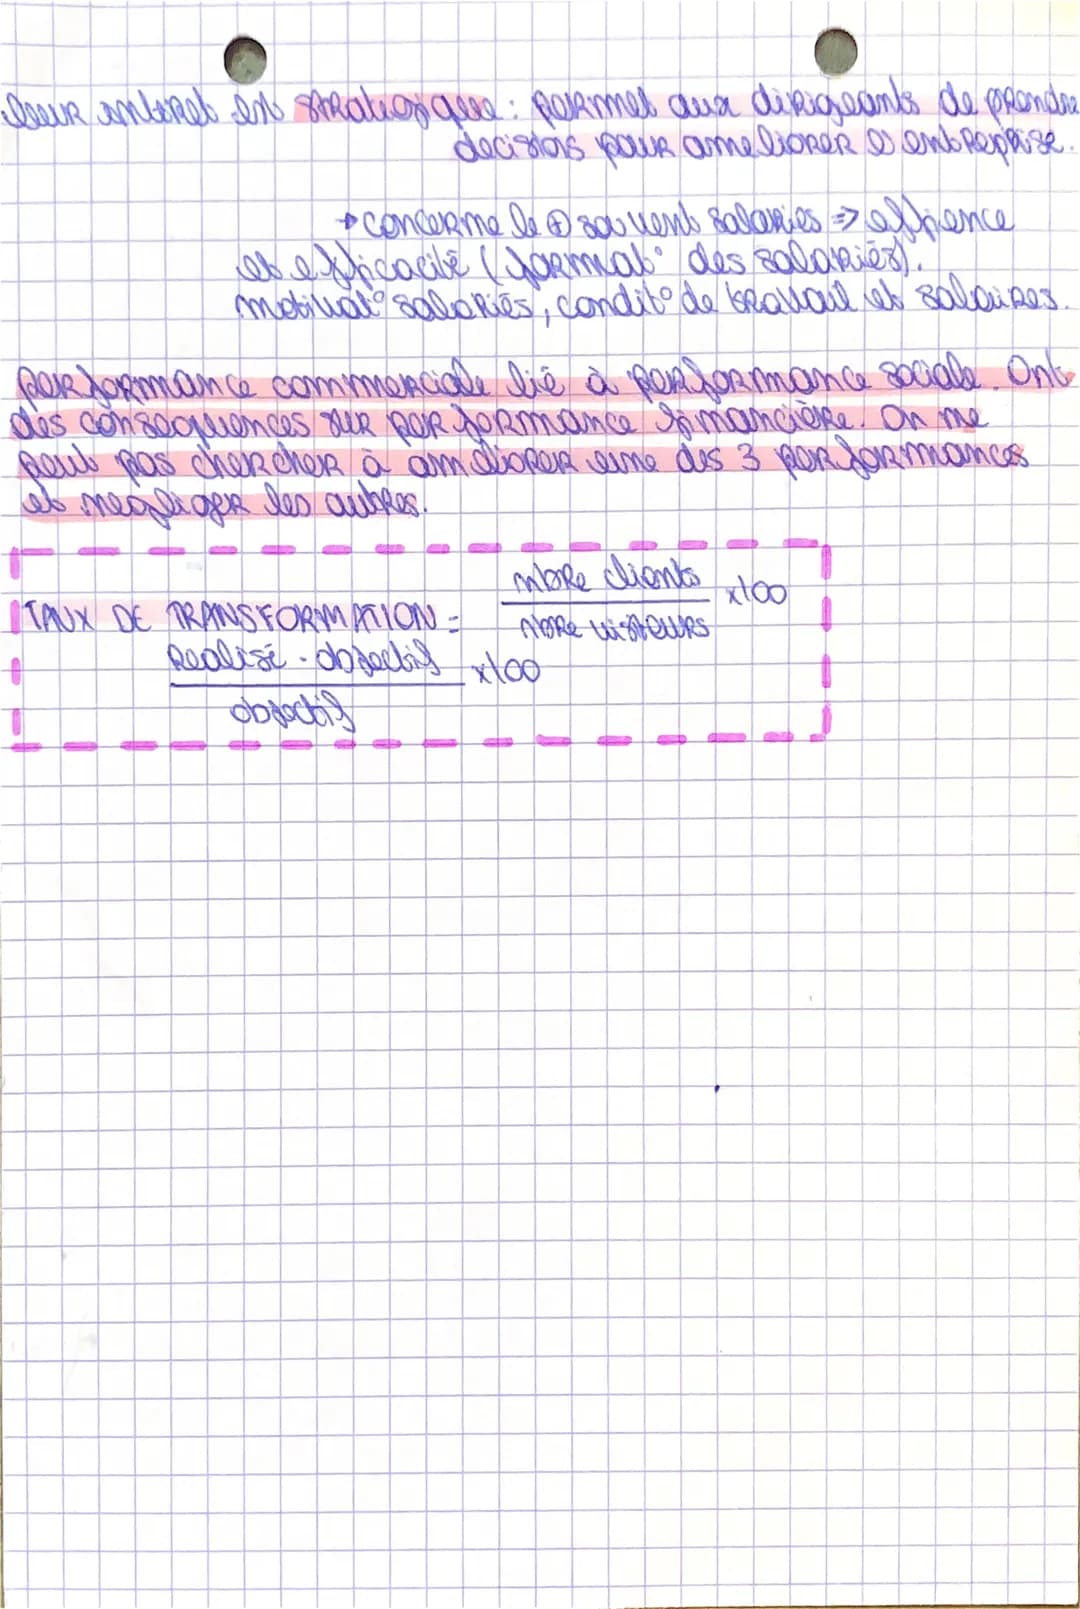 leur interet est strategique : permet aux dirigeants de prendre
decisions pour ameliorer l'entreprise.
→ concerne le ⊕ souvent salariés => effience
et efficacité (format° des salariés).
motivat° salariés, condit° de travail et salaires.
performance commerciale lié à performance sociale. Ont
des consequences sur performance financière. On ne
peut pas chercher à améliorer une des 3 performances
et negliger les autres.
TAUX DE TRANSFORMATION = nbre clients / nbre visiteurs x100
Realisé - objectif / objectif x100